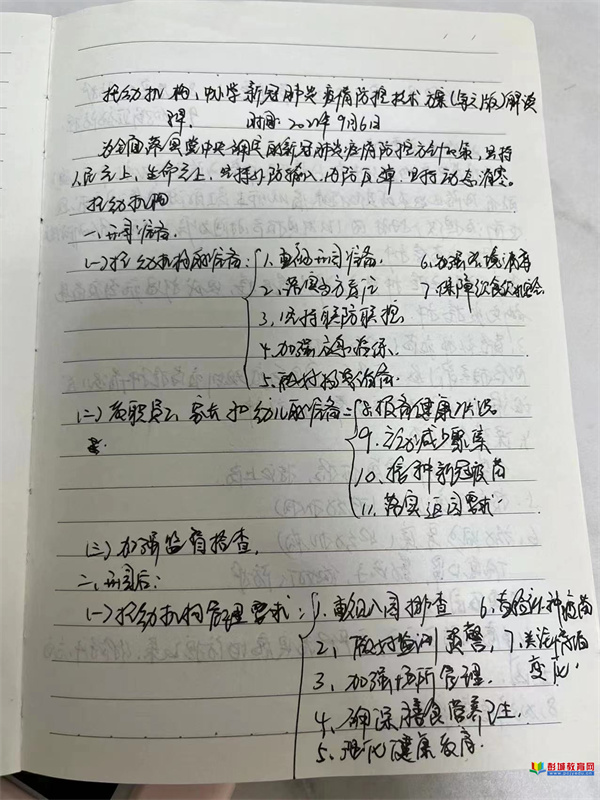 托幼机构、中小学新冠肺炎疫情防控技术方案(第三版)解读
时间: 2021年9月6日
为全面落实党中央确定的新冠肺炎疫情防控方针政策,坚持
人民至上,生命至上,坚持外防输入,内防反弹,坚持动态清零。
托幼机构
一、开园准备。
(一)托幼机构的准备: 1、重视开园准备. 6、加强环境消毒
2、落实各方责任 7、保障饮食饮水安全
3、坚持联防联控
4、加强应急演练.
5、做好物资储备.
(二)教职员工、家长和幼儿的准备: 8、报告健康状况
9、主动减少聚集
10、接种新冠疫苗
11、落实返园要求.
(三)加强监督检查.
二、开园后:
(一)托幼机构管理要求: 1、重视入园排查 6、查验补种疫苗
2、做好监测预警, 7、关注疫情
3、加强场所管理. 变化.
4、确保膳食营养卫生.
5、强化健康教育.
彭城教育网